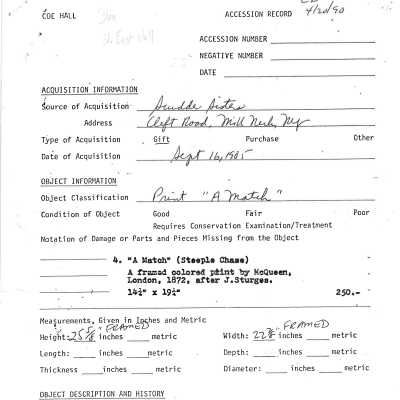 COE HALL
ACCESSION RECORD 4/20/90
ACCESSION NUMBER
NEGATIVE NUMBER
DATE
ACQUISITION INFORMATION
Source of Acquisition Scudde Sisters
Address Cleft Road, Mill Neck, NY
Type of Acquisition Gift Purchase Other
Date of Acquisition Sept 16, 1985
OBJECT INFORMATION
Object Classification Print "A Match"
Condition of Object Good Fair Poor
Requires Conservation Examination/Treatment
Notation of Damage or Parts and Pieces Missing from the Object
4. "A Match" (Steeple Chase)
A framed colored print by McQueen,
London, 1872, after J.Sturges.
14¾" x 19¼" 250.-
Measurements, Given in Inches and Metric
FRAMED FRAMED
Height: 25 5/8" inches metric Width: 22 7/8" inches metric
Length: inches metric Depth: inches metric
Thickness inches metric Diameter: inches metric
OBJECT DESCRIPTION AND HISTORY